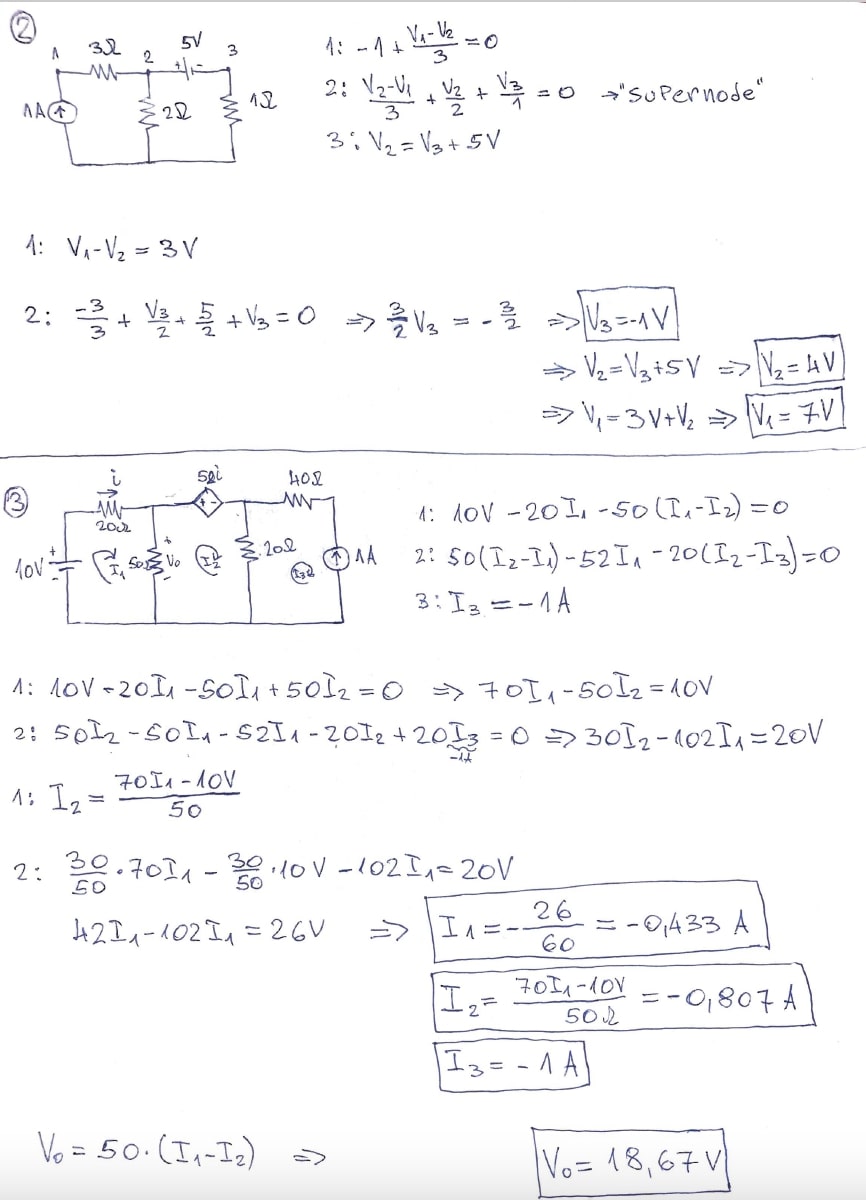 ②
1 3Ω 2 5V 3
+ -
1A 2Ω 1Ω
1: -1 + (V₁-V₂)/3 = 0
2: (V₂-V₁)/3 + V₂/2 + V₃/1 = 0 → "supernode"
3: V₂ = V₃ + 5V
1: V₁-V₂ = 3V
2: -3/3 + V₃/2 + 5/2 + V₃ = 0 ⇒ 3/2 V₃ = -3/2 ⇒ V₃ = -1V
⇒ V₂ = V₃+5V ⇒ V₂ = 4V
⇒ V₁ = 3V+V₂ ⇒ V₁ = 7V
③
i 52i 40Ω
20Ω + -
10V + - I₁ 50Ω + Vo - I₂ 20Ω I₃ 1A
1: 10V - 20I₁ - 50(I₁-I₂) = 0
2: 50(I₂-I₁) - 52I₁ - 20(I₂-I₃) = 0
3: I₃ = -1A
1: 10V - 20I₁ - 50I₁ + 50I₂ = 0 ⇒ 70I₁ - 50I₂ = 10V
2: 50I₂ - 50I₁ - 52I₁ - 20I₂ + 20I₃ = 0 ⇒ 30I₂ - 102I₁ = 20V
-1A
1: I₂ = (70I₁ - 10V)/50
2: 30/50 · 70I₁ - 30/50 · 10V - 102I₁ = 20V
42I₁ - 102I₁ = 26V ⇒ I₁ = -26/60 = -0,433 A
I₂ = (70I₁-10V)/50Ω = -0,807 A
I₃ = -1A
Vo = 50·(I₁-I₂) ⇒ Vo = 18,67V